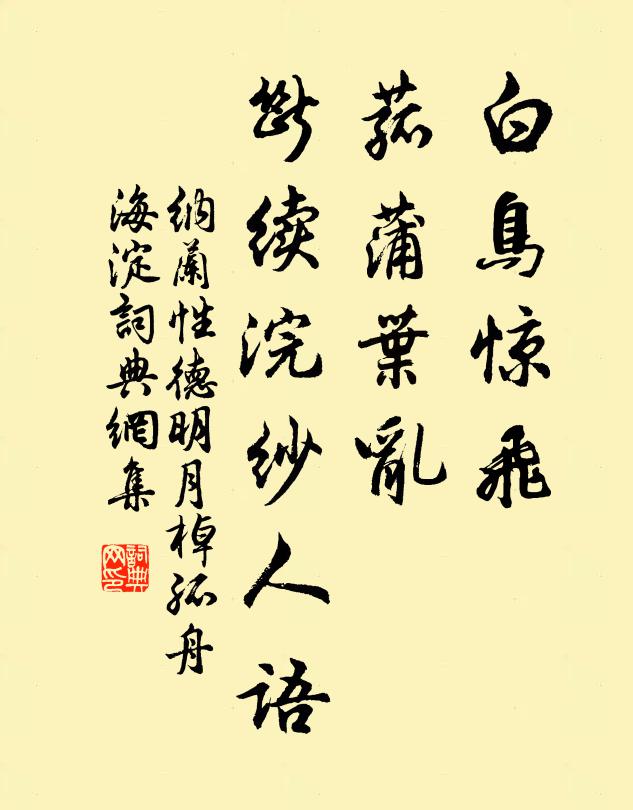 白鳥惊飛
菰蒲葉亂
斷续浣纱人语
纳蘭性德明月棹孤舟
海淀詞典網集
詞典
网印